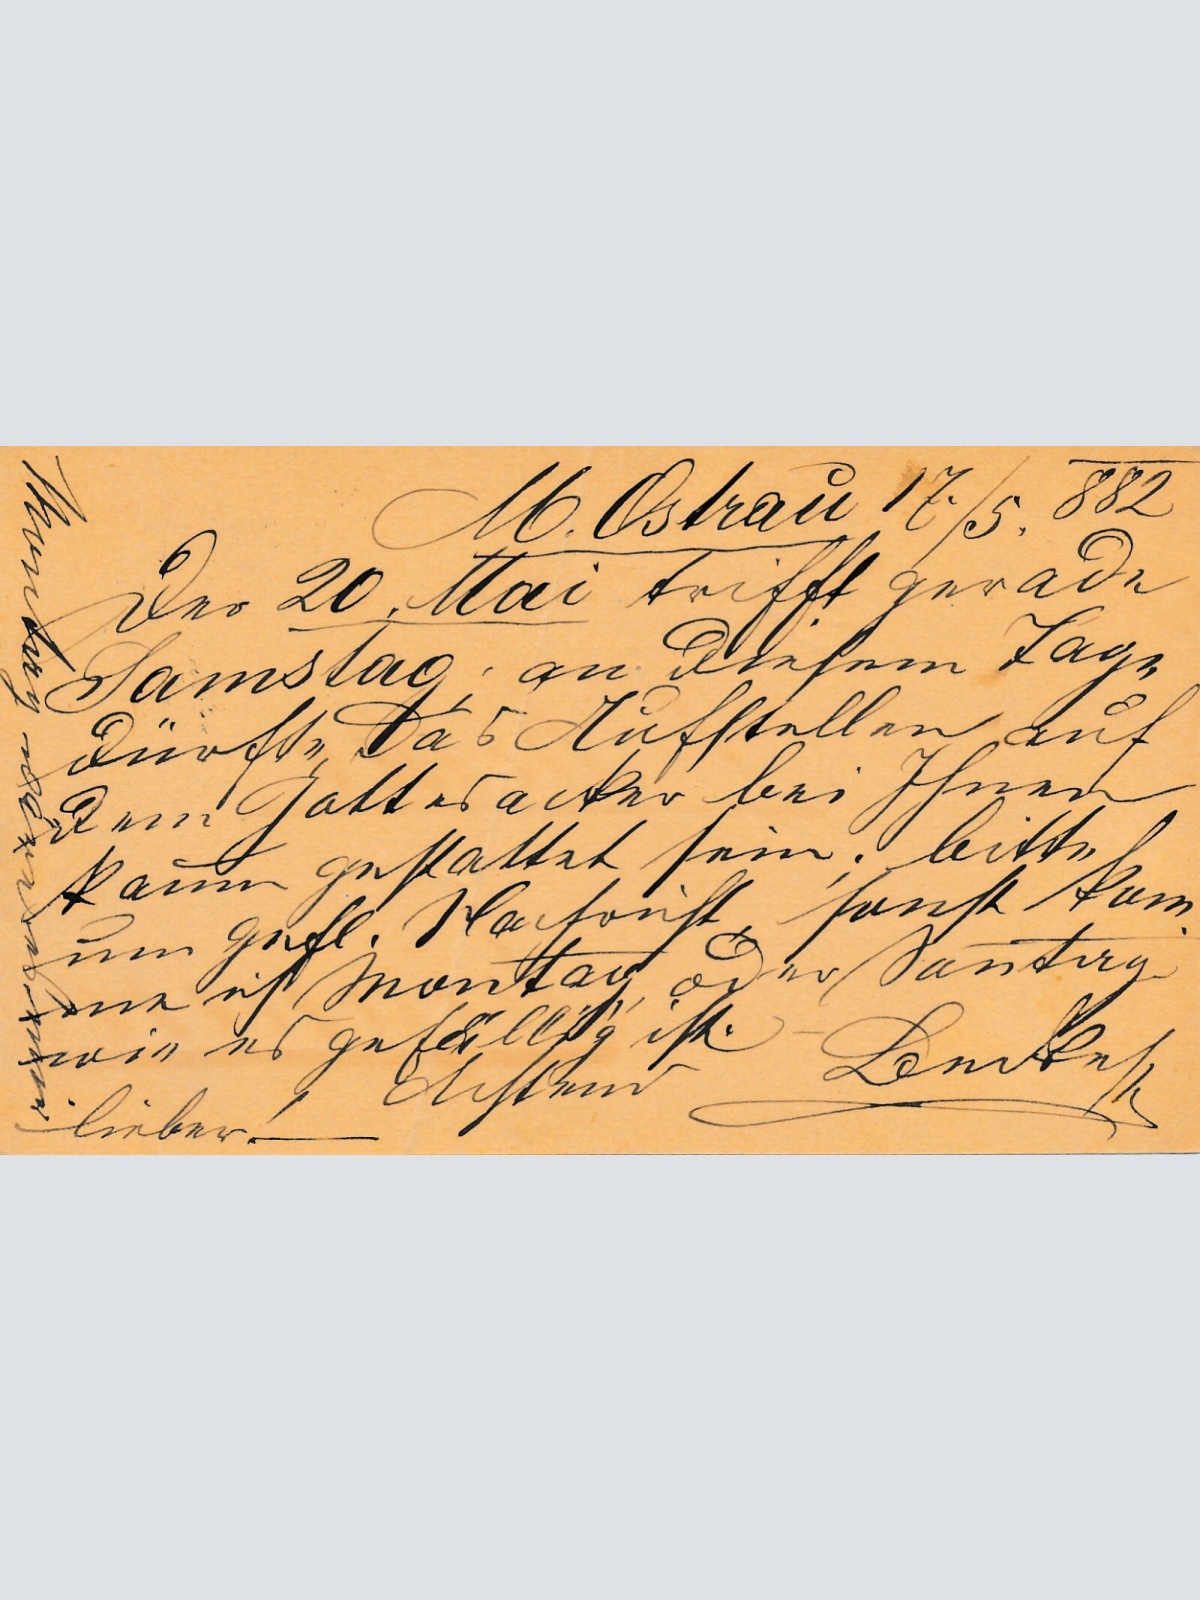 M. Ostrau 17./5. 882
Der 20. Mai trifft gerade
Samstag, an diesem Tage
dürfte das Aufstellen auf
dem Gottesacker bei Ihnen
kaum gestattet sein; bitte
um gefl. Nachricht, sonst kom̅
me ich Montag oder Sontag
wie es gefällig ist. –
Achtend
Montag wäre mir
lieber!